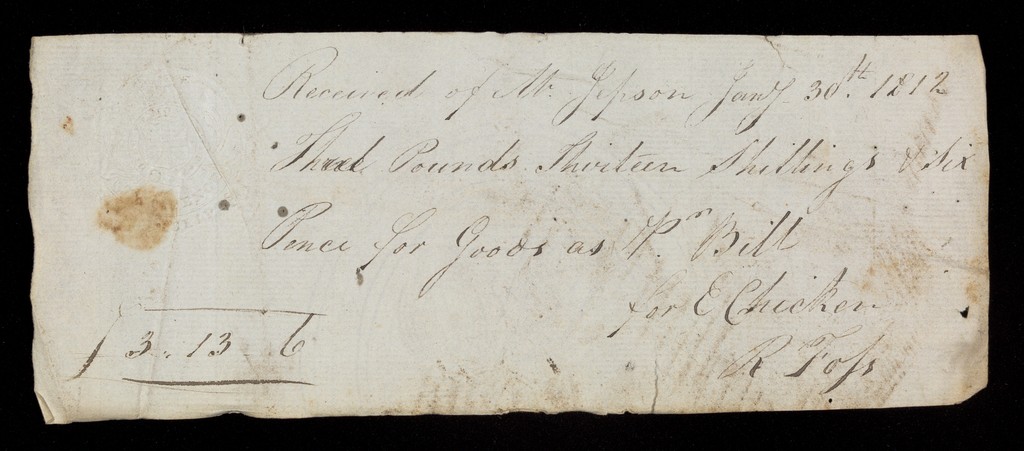 Received of Mr. Jepson Jany 30th. 1812
Three Pounds Thirteen Shillings & Six
Pence for Goods as Pr. Bill
for E Chicken
R Foss
£3. 13 6